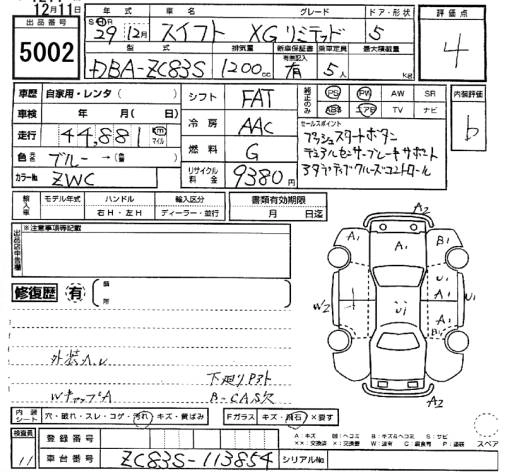 12月11日
出品番号
5002
年式 車名 グレード ドア・形状
29 12月 スイフト XGリミテッド 5
型式 排気量 新車保証書 乗車定員 最大積載量
有無記入
DBA-ZC83S 1200cc 有 5人 kg
評価点
4
内装評価
b
車歴 自家用・レンタ( ) シフト FAT
車検 年 月( 日) 冷房 AAC
走行 44,881 km マイル 燃料 G
色 ブルー →( ) リサイクル料金 9380円
カラーNo ZWC
純正のみ PS PW AW SR
ABS エアB TV ナビ
セールスポイント
プッシュスタートボタン
デュアルセンサーブレーキサポート
アダプティブクルーズコントロール
輸入車 モデル年式 ハンドル 輸入区分 書類有効期限
右H・左H ディーラー・並行 月 日迄
※注意事項等記載
修復歴 有 箇所
外装A.U
下廻りサビ
WキャップA B-CAS欠
A2
A1 A1 B1
W2 U1 A1 U1
A1
B1
A2
内装シート 穴・破れ・スレ・コゲ・汚れ・キズ・黄ばみ Fガラス キズ・飛石・X要す
検査員 11
登録番号
車台番号 ZC83S-113854 シリアルNo
スペア